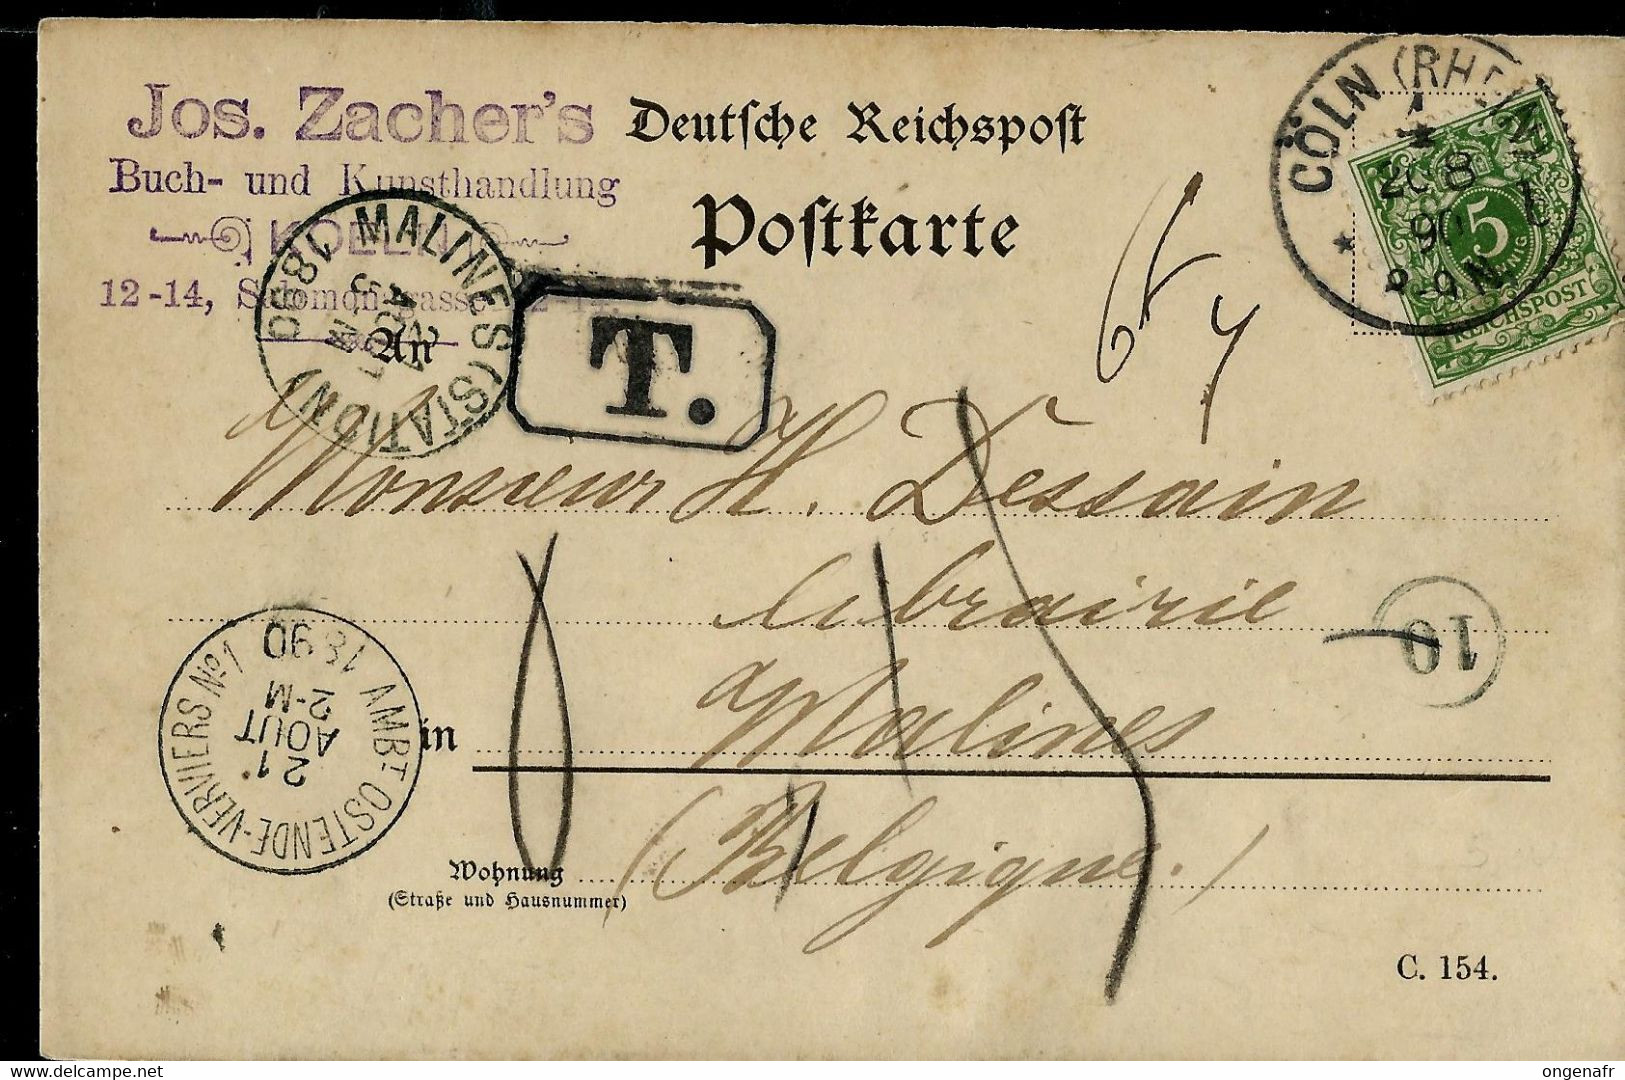 Jos. Zacher's
Buch- und Kunsthandlung
KOELN
12-14, Salomonsgasse 12-14.
Deutsche Reichspost
Postkarte
CÖLN (RHEIN)
* 1
20 8
90
8-9 N
5
REICHSPOST
MALINES (STATION)
1890
T.
An
Monsieur H. Dessain
Librairie
10
in Malines
AMBT OSTENDE-VERVIERS No 1
21
AOUT
2-M
1890
Wohnung (Belgique.)
(Straße und Hausnummer)
C. 154.
www.delcampe.net
ongenafr